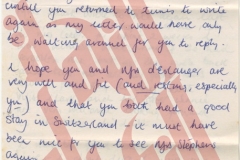 untill you returned to Tunis to write
again as my letter would have only
be waiting around for you to reply.
I hope you and Mrs d'Erlanger are
very well and fit (and resting, especially
you) and that you both had a good
stay in Switzerland it must have
been nice for you to see Mrs Stephens
again